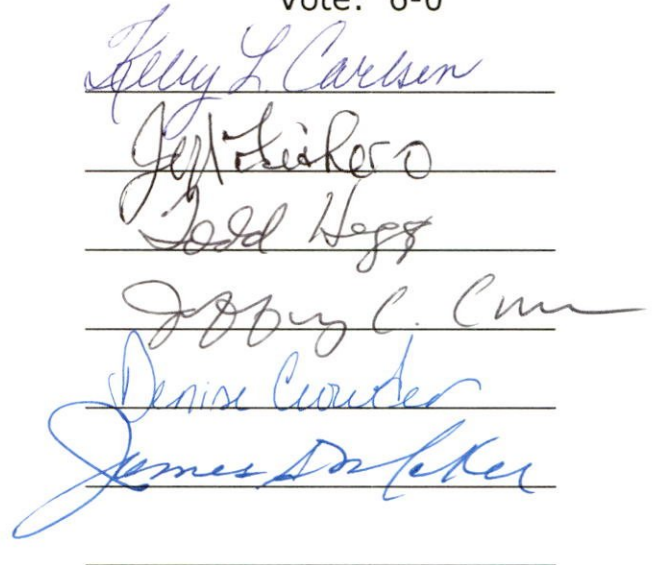 Vote: 6-0
Kelly L Carlsen
Jeff
Todd Hegg
Jeffrey C.
Denise Crowder
James